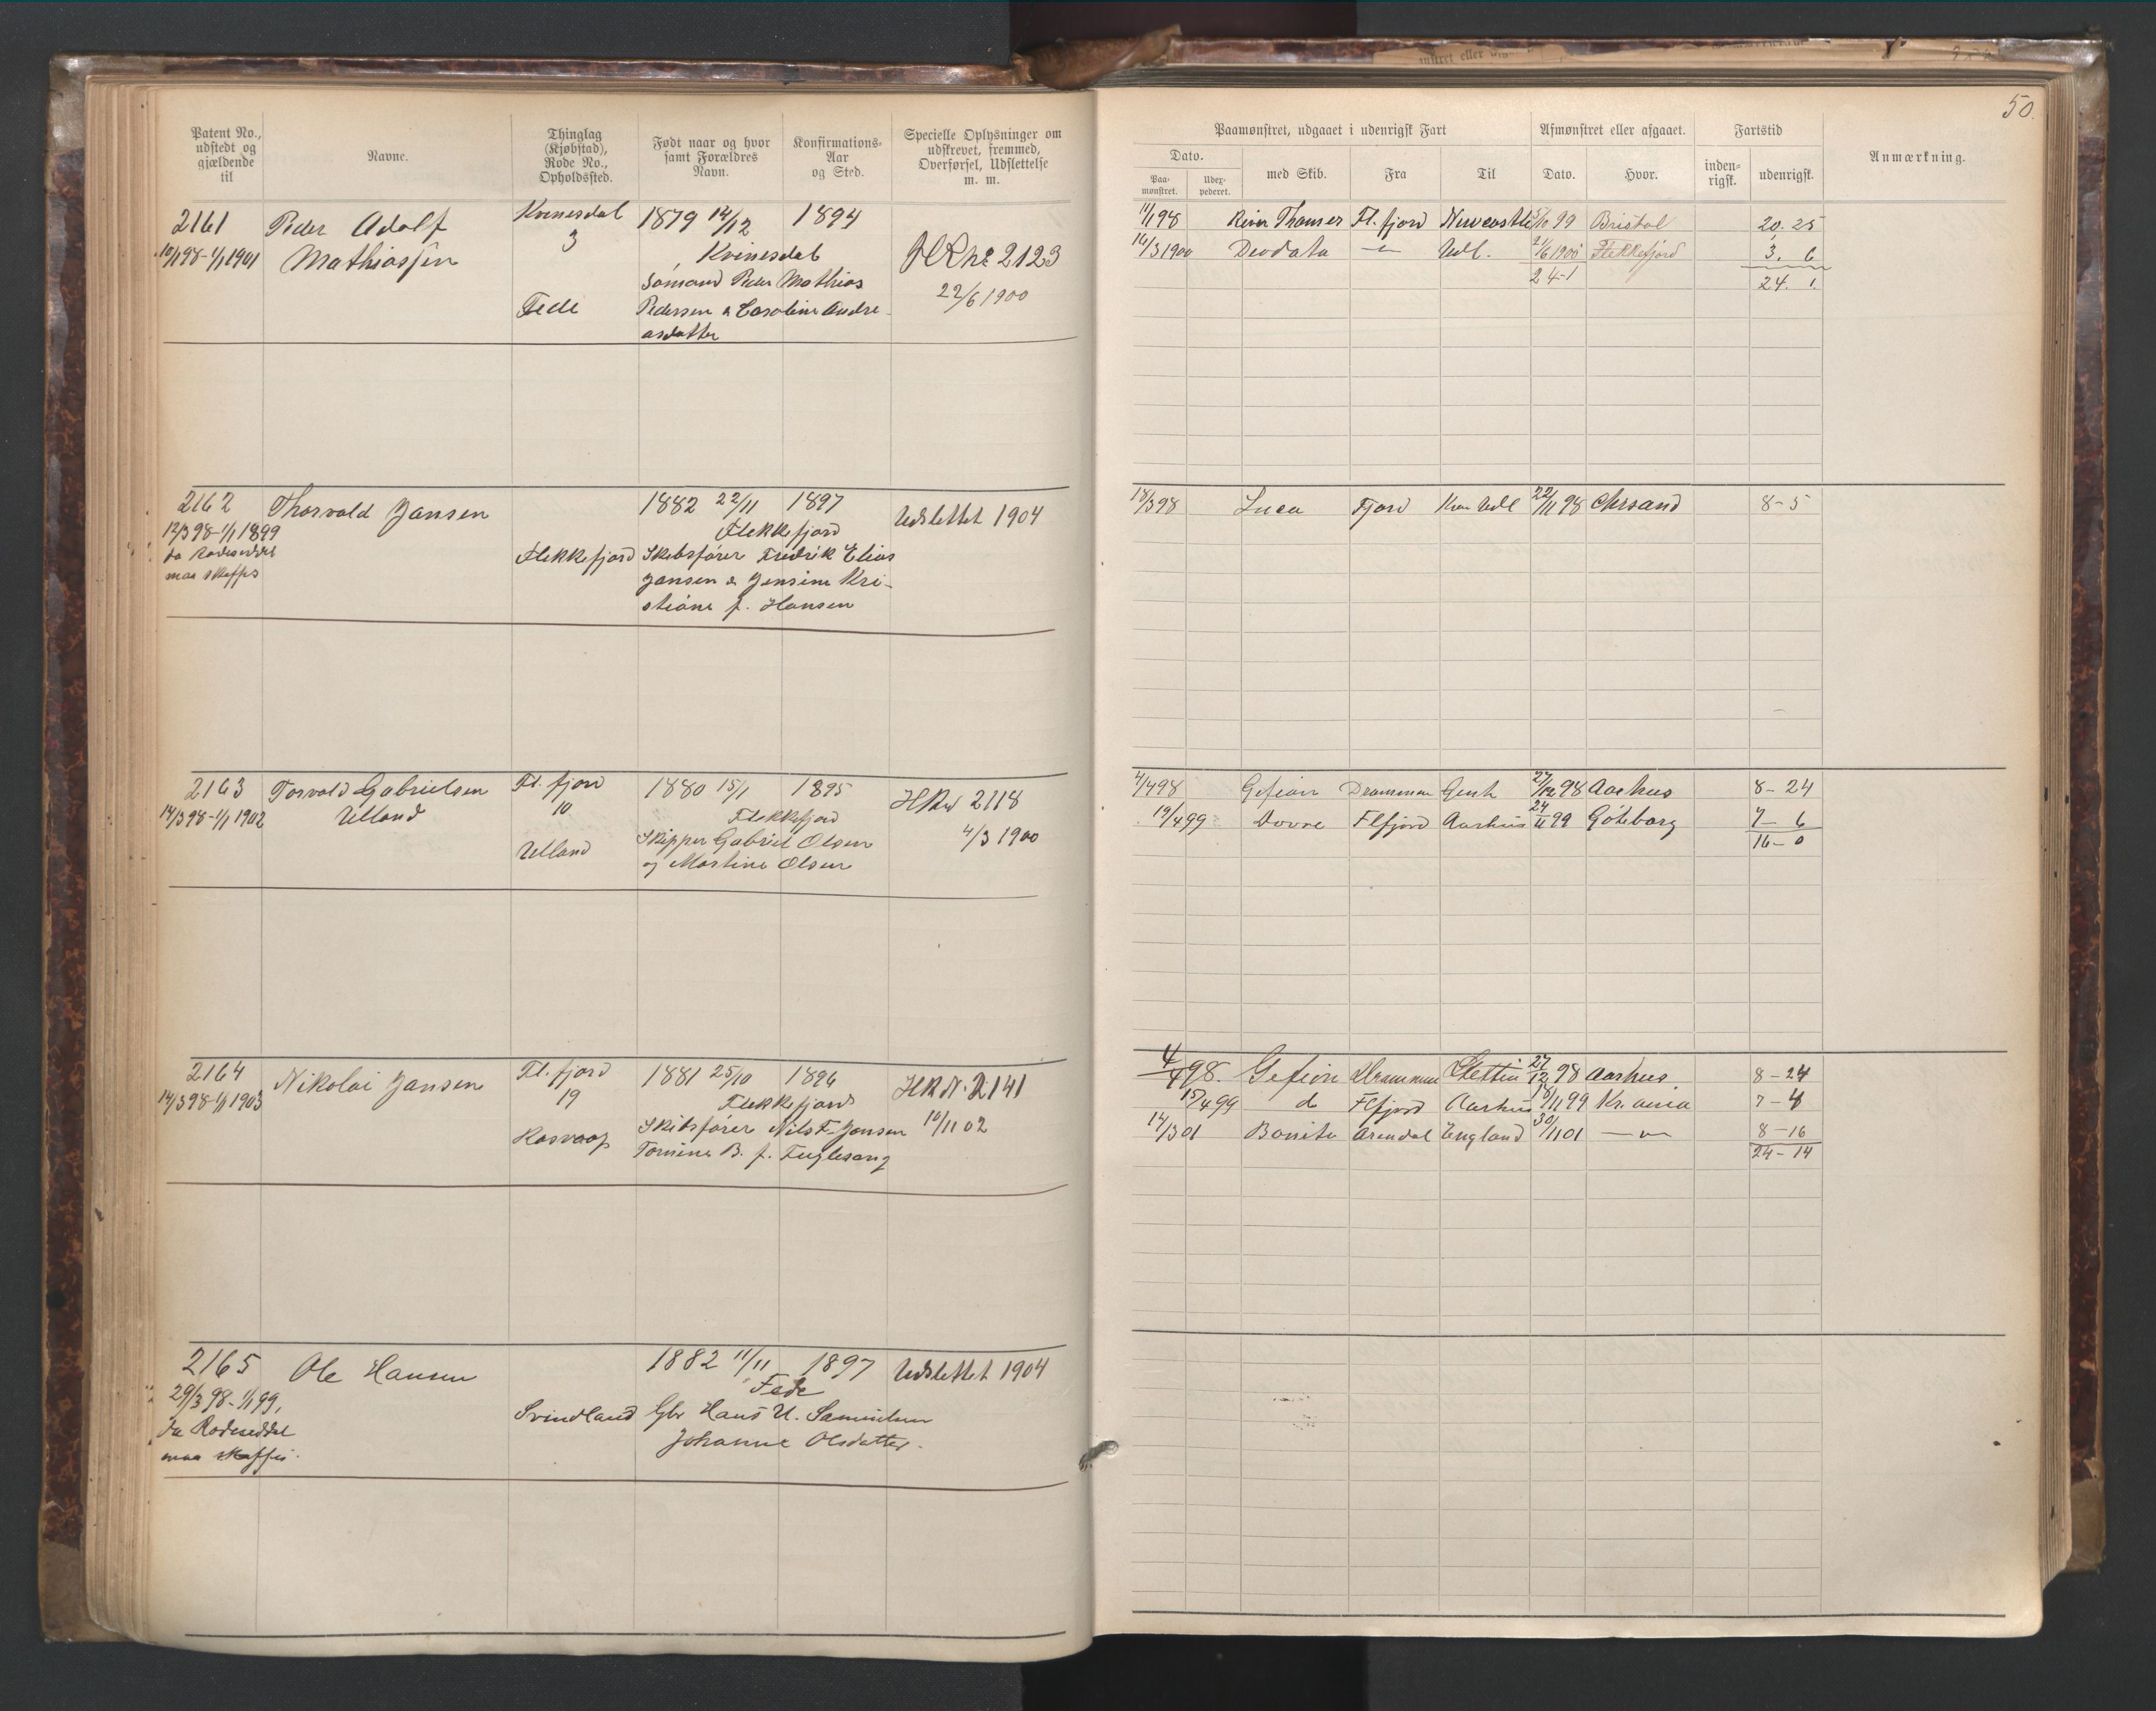 Patent No., udstedt og gjældende til
Navne.
Thinglag (Kjøbstad), Rode No., Opholdssted.
Født naar og hvor samt Forældres Navn.
Konfirmations-Aar og Sted.
Specielle Oplysninger om udskrevet, fremmed, Overførsel, Udslettelse m. m.
2161 Peder Adolf Kvinesdal 1879 12/12 1894
10/1 98-1/1 1901 Mathiassen 3 Kvinesdal HR No 2123
Sømand Peder Mathias 22/6 1900
Fede Pedersen & Caroline Andre-
asdatter
2162 Thorvald Jansen 1882 22/11 1897 Udslettet 1904
12/3 98-1/1 1899 Flekkefjord
da Rodeseddel Flekkefjord Skibsfører Fredrik Elias
maa skaffes Jansen & Jensine Kri-
stiane f. Hansen
2163 Torvald Gabrielsen Fl. fjord 1880 15/1 1895 HR No 2118
14/3 98-1/1 1902 Ulland 10 Flekkefjord
Ulland Skipper Gabriel Olsen 4/3 1900
og Martine Olsen
2164 Nikolai Jansen Fl. fjord 1881 25/10 1896 HR N. 2141
14/3 98-1/1 1903 19 Flekkefjord
Rasvaag Skibsfører Nils F. Jansen 10/11 02
Tomine B. f. Fuglesang
2165 Ole Hansen 1882 11/11 1897 Udslettet 1904
29/3 98-1/1 99, Fede
da Rodeseddel Svindland Gbr Hans U. Samuelsen
maa skaffes. Johanne Olsdatter.
50.
Paamønstret, udgaaet i udenrigsk Fart
Afmønstret eller afgaaet.
Fartstid
Anmærkning.
Dato.
Paa-mønstret.
Udex-pederet.
med Skib.
Fra
Til
Dato.
Hvor.
inden-rigsk.
udenrigsk.
11/1 98 Fl. fjord Newcastle 5/10 99 Bristol 20. 25
16/3 1900 Deodata — " — Udl. 21/6 1900 Flekkefjord 3. 6
24-1 24. 1.
18/3 98 Luca Fjord Udl 22/11 98 Chrsand 8-5
4/4 98 Gefion Drammen Gent 27/12 98 Aarhus 8-24
19/4 99 Dovre Flfjord Aarhus 24/11 99 Göteborg 7-6
16-0
4/4 98. Gefion Drammen Stettin 27/12 98 Aarhus. 8-24
15/4 99 do Flfjord Aarhus 18/11 99 Kr.ania 7-4
14/3 01 Bonita Arendal England 30/11 01 — " — 8-16
24-14